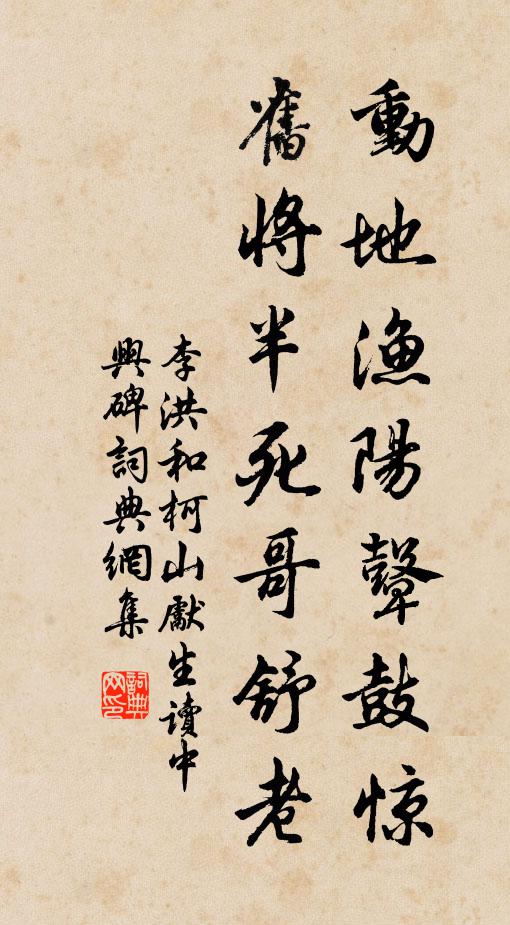 動地漁陽鼙鼓惊
舊將半死哥舒老
李洪和柯山獻生讀中
興碑詞典網集
詞典
网印